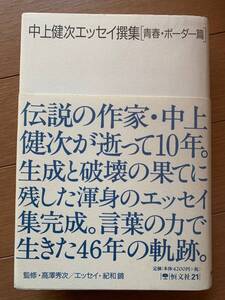 中上健次エッセイ撰集[青春・ボーダー篇]
伝説の作家・中上
健次が逝って10年。
生成と破壊の果てに
残した渾身のエッセイ
集完成。言葉の力で
生きた46年の軌跡。
監修・高澤秀次/エッセイ・紀和鏡
定価(本体4200円+税)
恒文社21